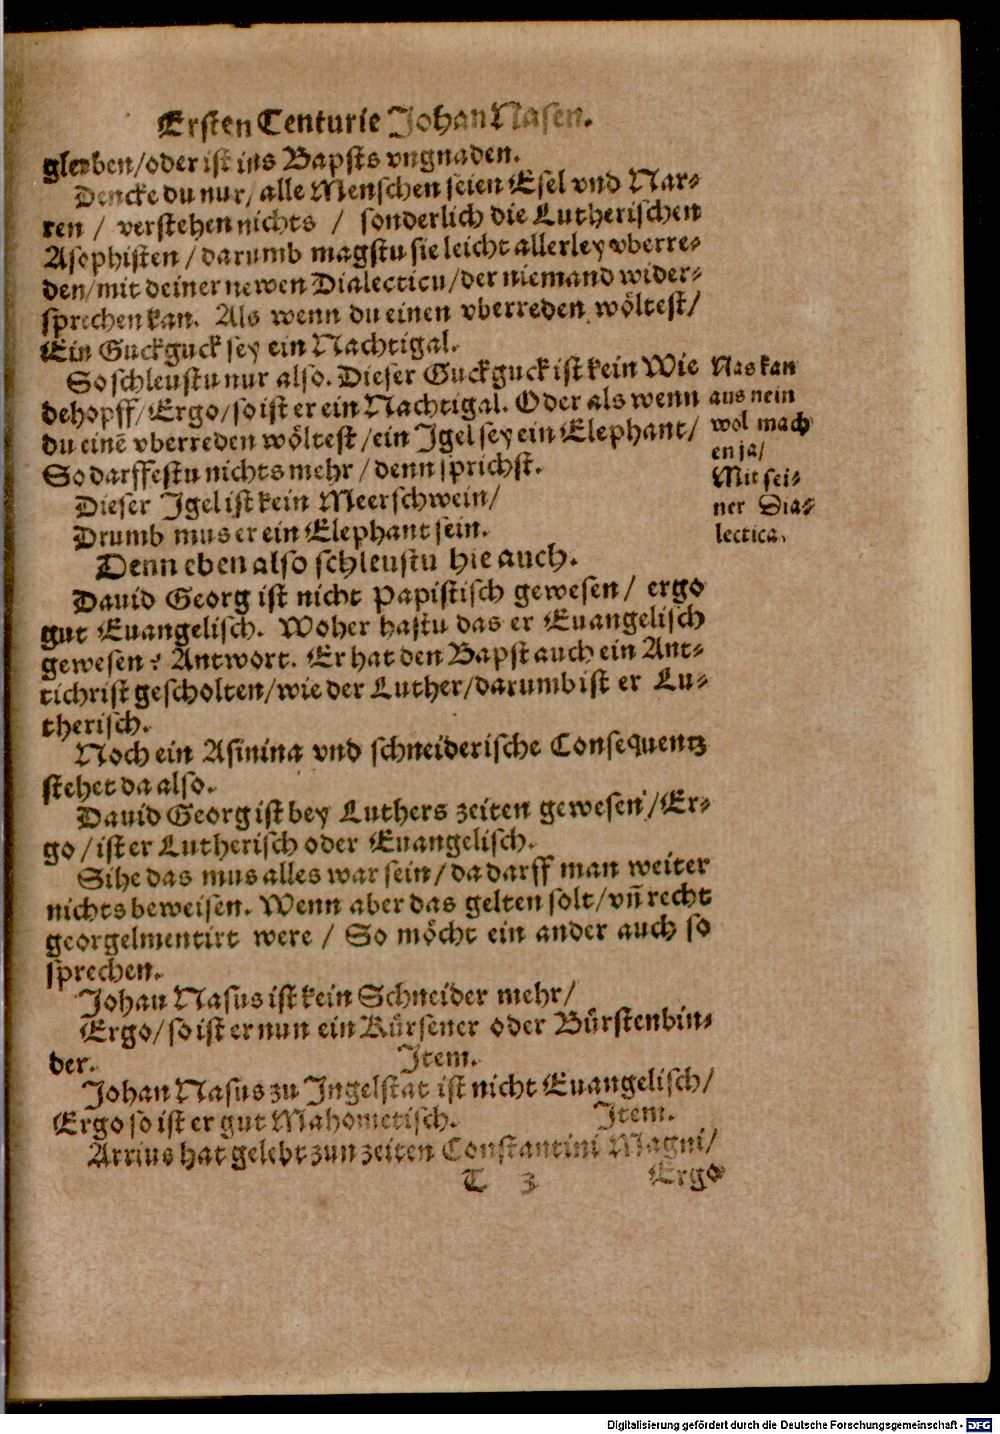 Ersten Centurie Johan Nasen.
gleuben/oder ist ins Bapsts vngnaden.
Dencke du nur/ alle Menschen seien Esel vnd Nar-
ren / verstehen nichts / sonderlich die Lutherischen
Asophisten / darumb magstu sie leicht allerley vberre-
den/mit deiner newen Dialecticu/der niemand wider-
sprechen kan. Als wenn du einen vberreden wöltest/
Ein Guckguck sey ein Nachtigal.
So schleustu nur also. Dieser Guckguck ist kein Wie
dehopff/Ergo/so ist er ein Nachtigal. Oder als wenn
du einē vberreden wöltest /ein Igel sey ein Elephant/
So darffestu nichts mehr / denn sprichst.
Dieser Igel ist kein Meerschwein/
Drumb mus er ein Elephant sein.
Denn eben also schleustu hie auch.
Dauid Georg ist nicht Papistisch gewesen/ ergo
gut Euangelisch. Woher hastu das er Euangelisch
gewesen? Antwort. Er hat den Bapst auch ein Ant-
tichrist gescholten/wie der Luther/darumb ist er Lu-
therisch.
Noch ein Asinina vnd schneiderische Consequentz
stehet da also.
Dauid Georg ist bey Luthers zeiten gewesen/Er-
go/ist er Lutherisch oder Euangelisch.
Sihe das mus alles war sein/da darff man weiter
nichts beweisen. Wenn aber das gelten solt/vn̄ recht
georgelmentirt were / So möcht ein ander auch so
sprechen.
Johan Nasus ist kein Schneider mehr/
Ergo/so ist er nun ein Kürsener oder Bürstenbin-
der. Item.
Johan Nasus zu Ingelstat ist nicht Euangelisch/
Ergo so ist er gut Mahometisch. Item.
Arrius hat gelebt zun zeiten Constantini Magni/
T 3 Ergo
Nas kan
aus nein
wol mach
en ja/
Mit sei-
ner Dia-
lectica.
Digitalisierung gefördert durch die Deutsche Forschungsgemeinschaft - DFG